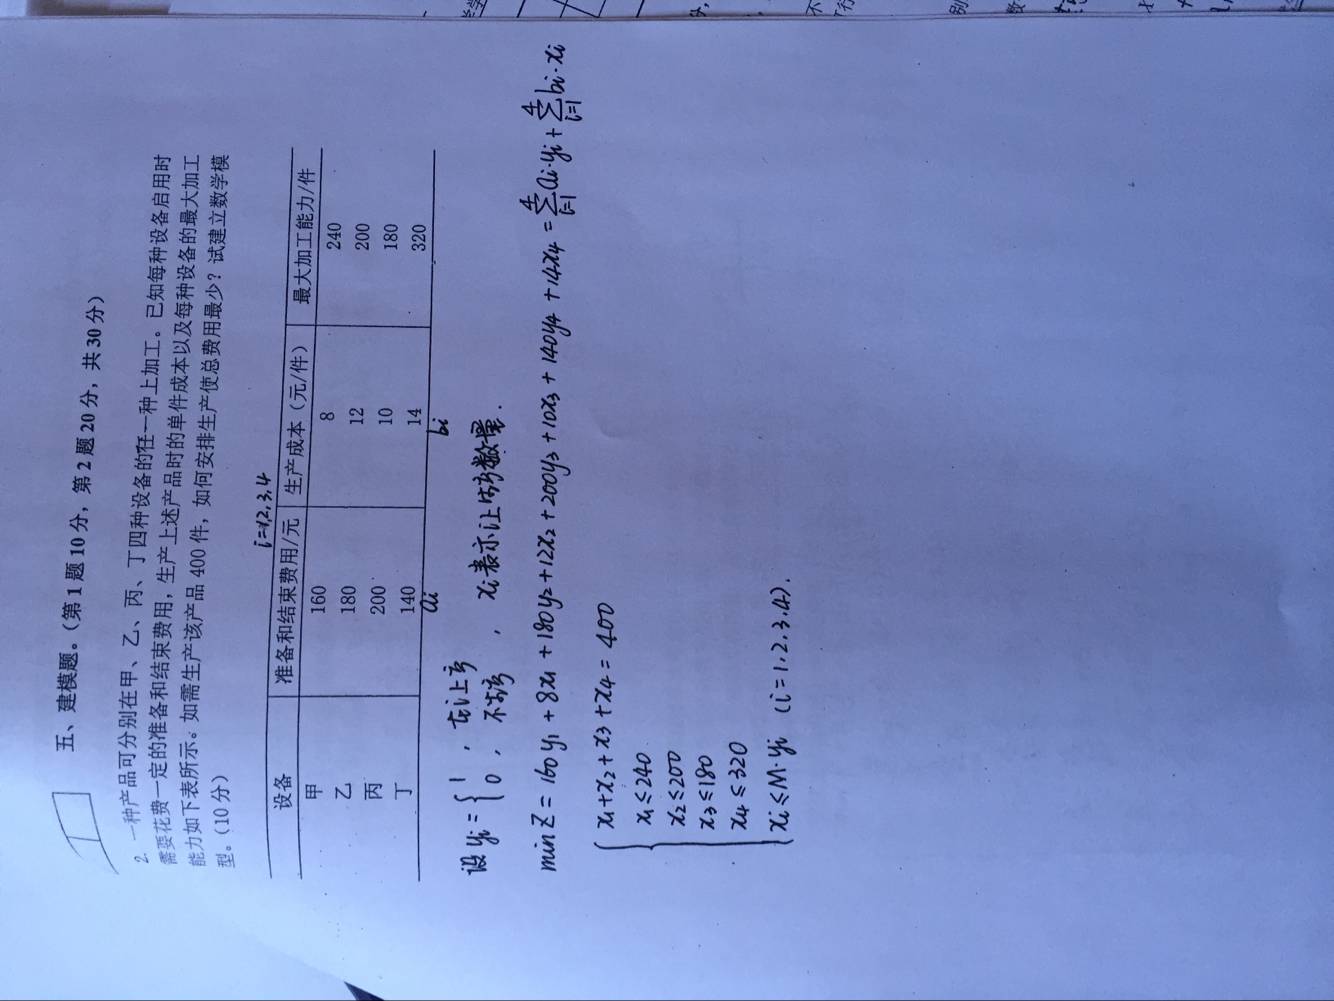 五、建模题。（第1题10分，第2题20分，共30分）
2. 一种产品可分别在甲、乙、丙、丁四种设备的任一种上加工。已知每种设备启用时
需要花费一定的准备和结束费用，生产上述产品时的单件成本以及每种设备的最大加工
能力如下表所示。如需生产该产品400件，如何安排生产使总费用最少？试建立数学模
型。（10分）
i=1,2,3,4
设备 准备和结束费用/元 生产成本（元/件） 最大加工能力/件
甲 160 8 240
乙 180 12 200
丙 200 10 180
丁 140 14 320
ai bi
设 yi = { 1 , 在i上
0 , 不 , xi表示i上的数量.
min Z = 160y1 + 8x1 + 180y2 + 12x2 + 200y3 + 10x3 + 140y4 + 14x4 = Σ(i=1→4) ai·yi + Σ(i=1→4) bi·xi
x1+x2+x3+x4 = 400
x1≤240
x2≤200
x3≤180
x4≤320
xi≤M·yi (i=1.2.3.4).